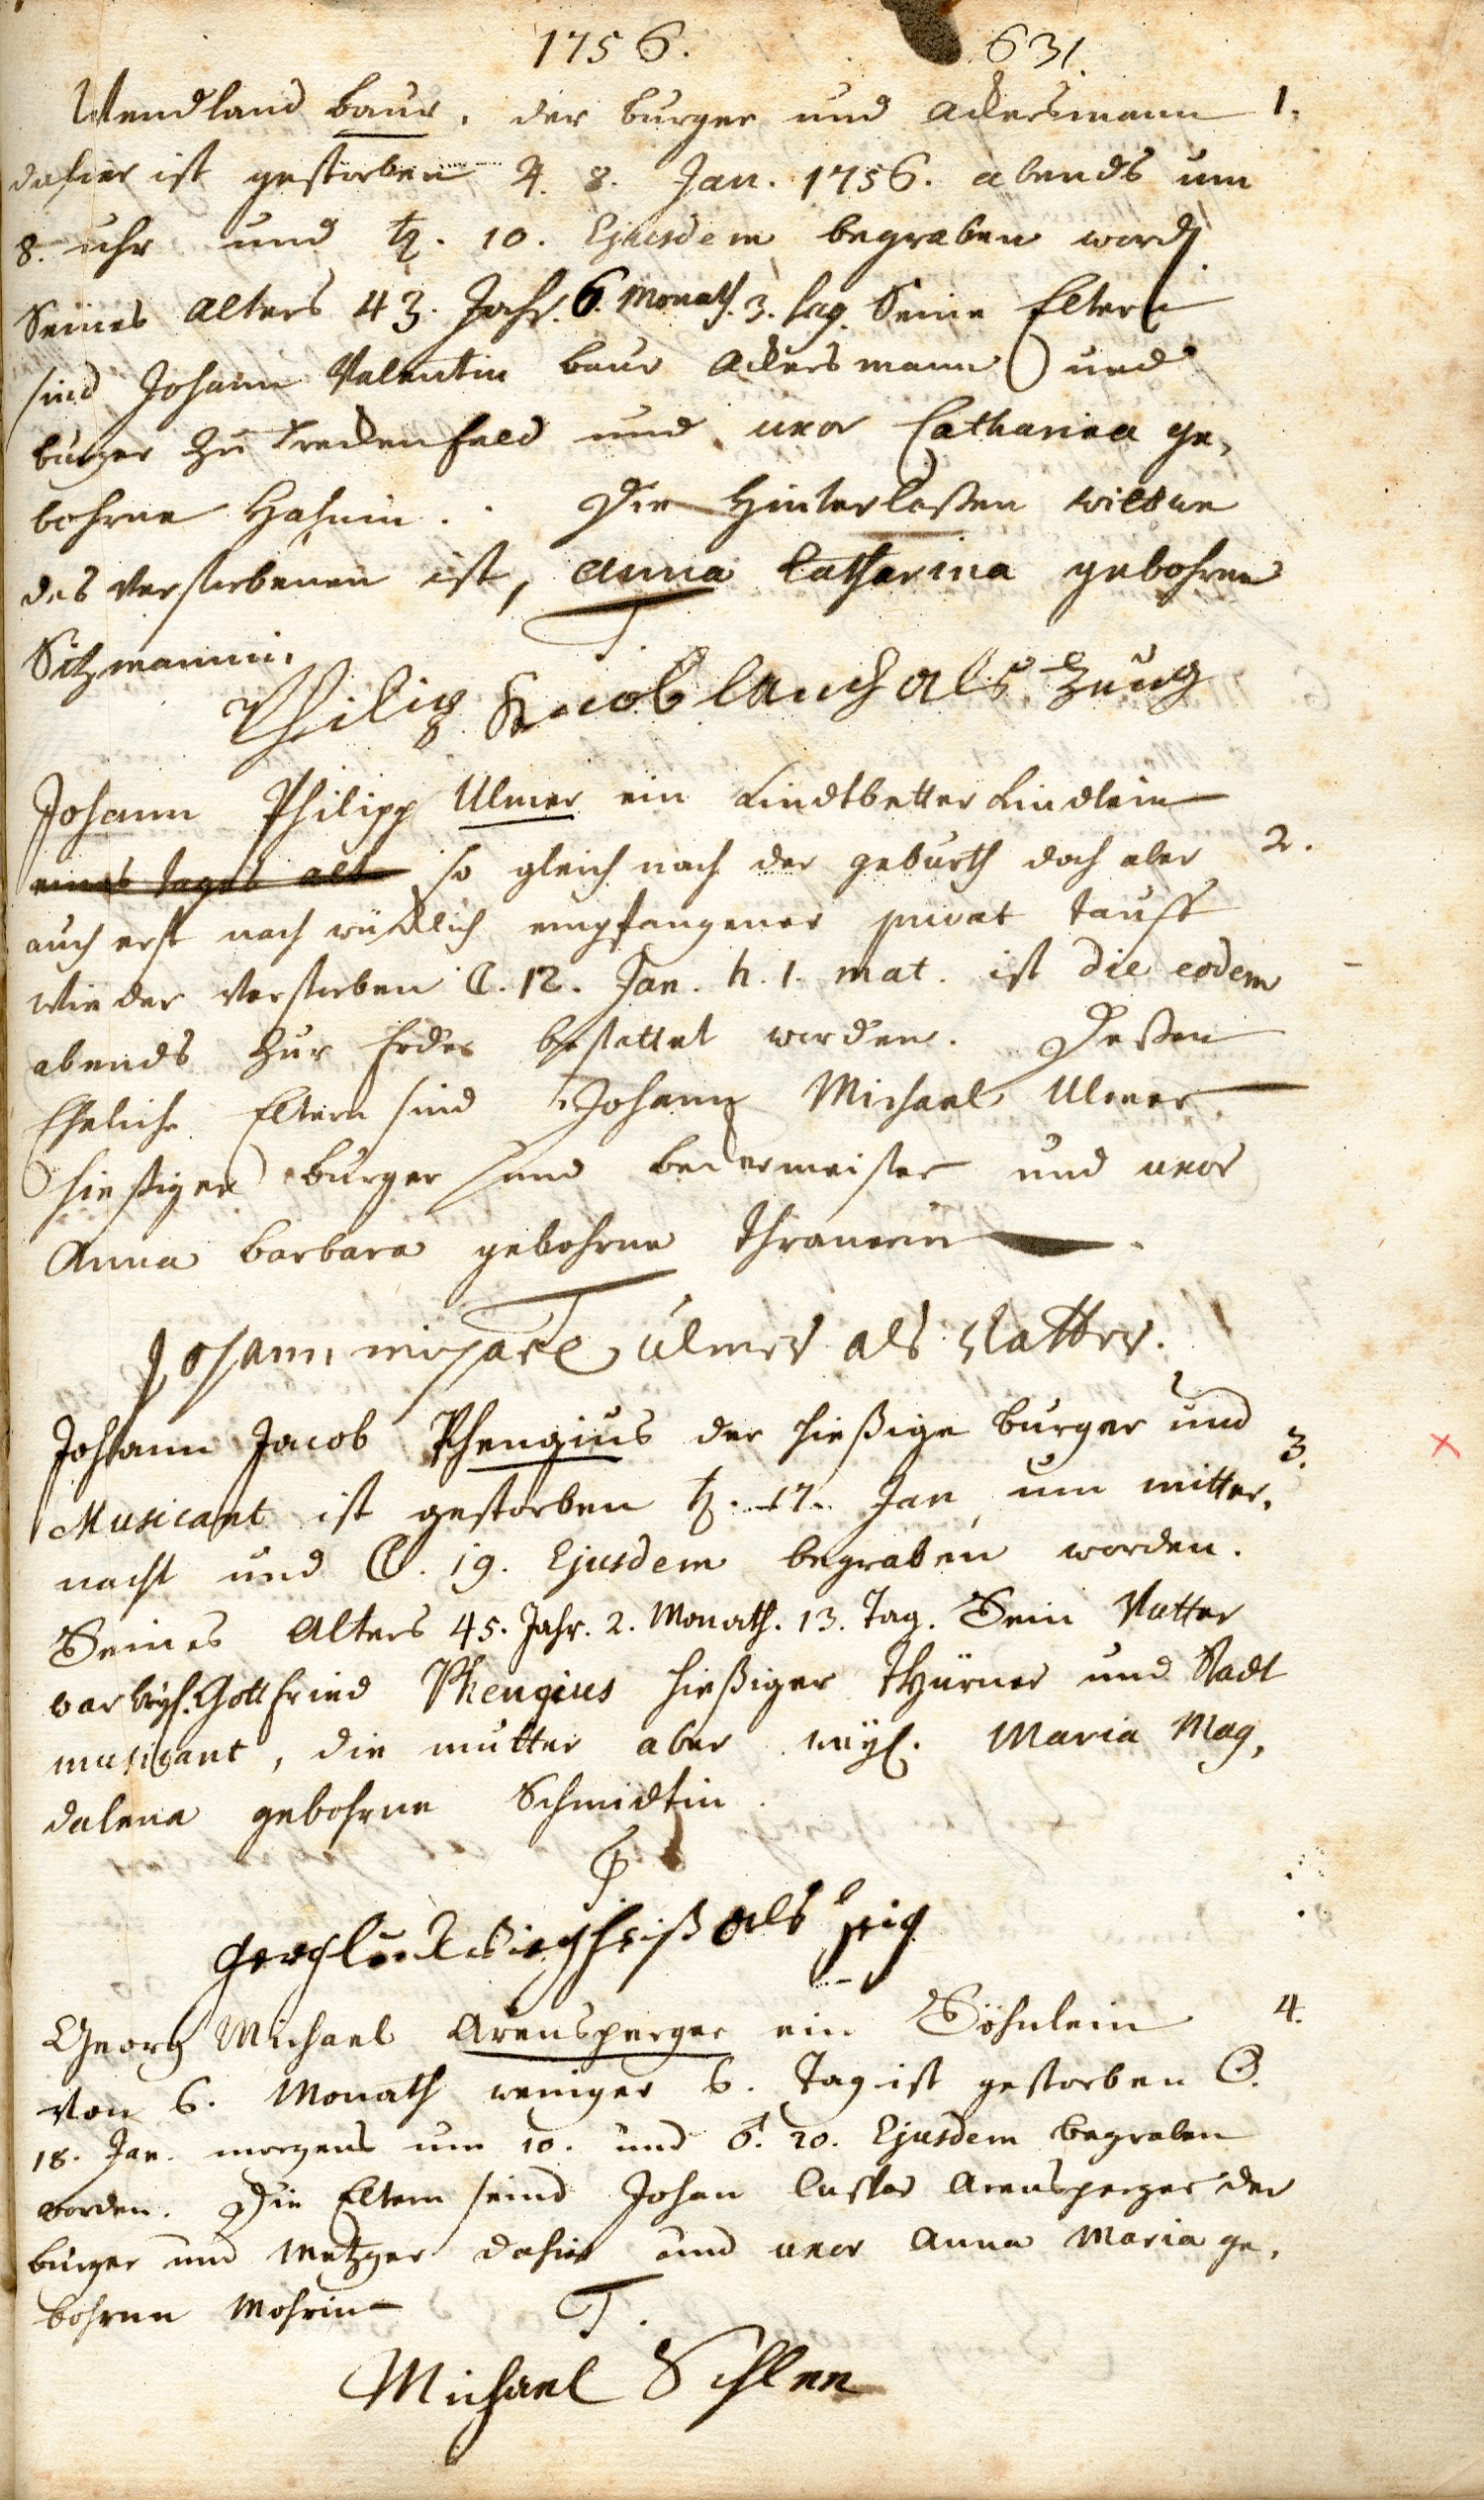 1756. 631.
Wendland Baur, der burger und Ackersmann 1.
dahier ist gestorben ♃. 8. Jan. 1756. abends um
8. uhr und ♄. 10. Ejusdem begraben word.
Seines Alters 43. Jahr. 6. Monath. 3. tag. Seine Eltern
sind Johann Valentin Baur Ackersmann und
burger zu und uxor Catharina ge-
bohrne Hahnin. Die Hinterlaßen wittwe
des Verstorbenen ist, Anna Catharina gebohrne
Sitzmannin.
T.
Philip Knoblauch als Zeug
Johann Philipp Ulmer ein Kindtbetter Kindlein
eines tages alt so gleich nach der geburth doch aber 2.
auch erst nach würcklich empfangener privat tauff
wieder verstorben ☾. 12. Jan. h. 1. mat. ist die eodem
abends zur Erden bestattet worden. Deßen
Eheliche Eltern sind Johann Michael Ulmer
hießiger burger und beckermeister und uxor
Anna Barbara gebohrne
T
Johann michael ulmer als Vatter.
Johann Jacob Phengius der hießige burger und 3.
Musicant ist gestorben ♄. 17. Jan. um mitter-
nacht und ☾. 19. Ejusdem begraben worden.
Seines Alters 45. Jahr. 2. Monath. 13. Tag. Sein Vatter
war weyl. Gottfried Phengius hießiger Thürner und Stadt
musicant, die mutter aber weyl. Maria Mag-
dalena gebohrne Schmidtin.
T
als Zeig
Georg Michael Arensperger ein Söhnlein 4.
von 6. Monath weniger 6. Tag ist gestorben ☉.
18. Jan. morgens um 10. und ♂. 20. Ejusdem begraben
worden. Die Eltern seind Johan Caspar Arensperger der
burger und Metzger dahier und uxor Anna Maria ge-
bohrne Mohrin
T.
Michael Schlee